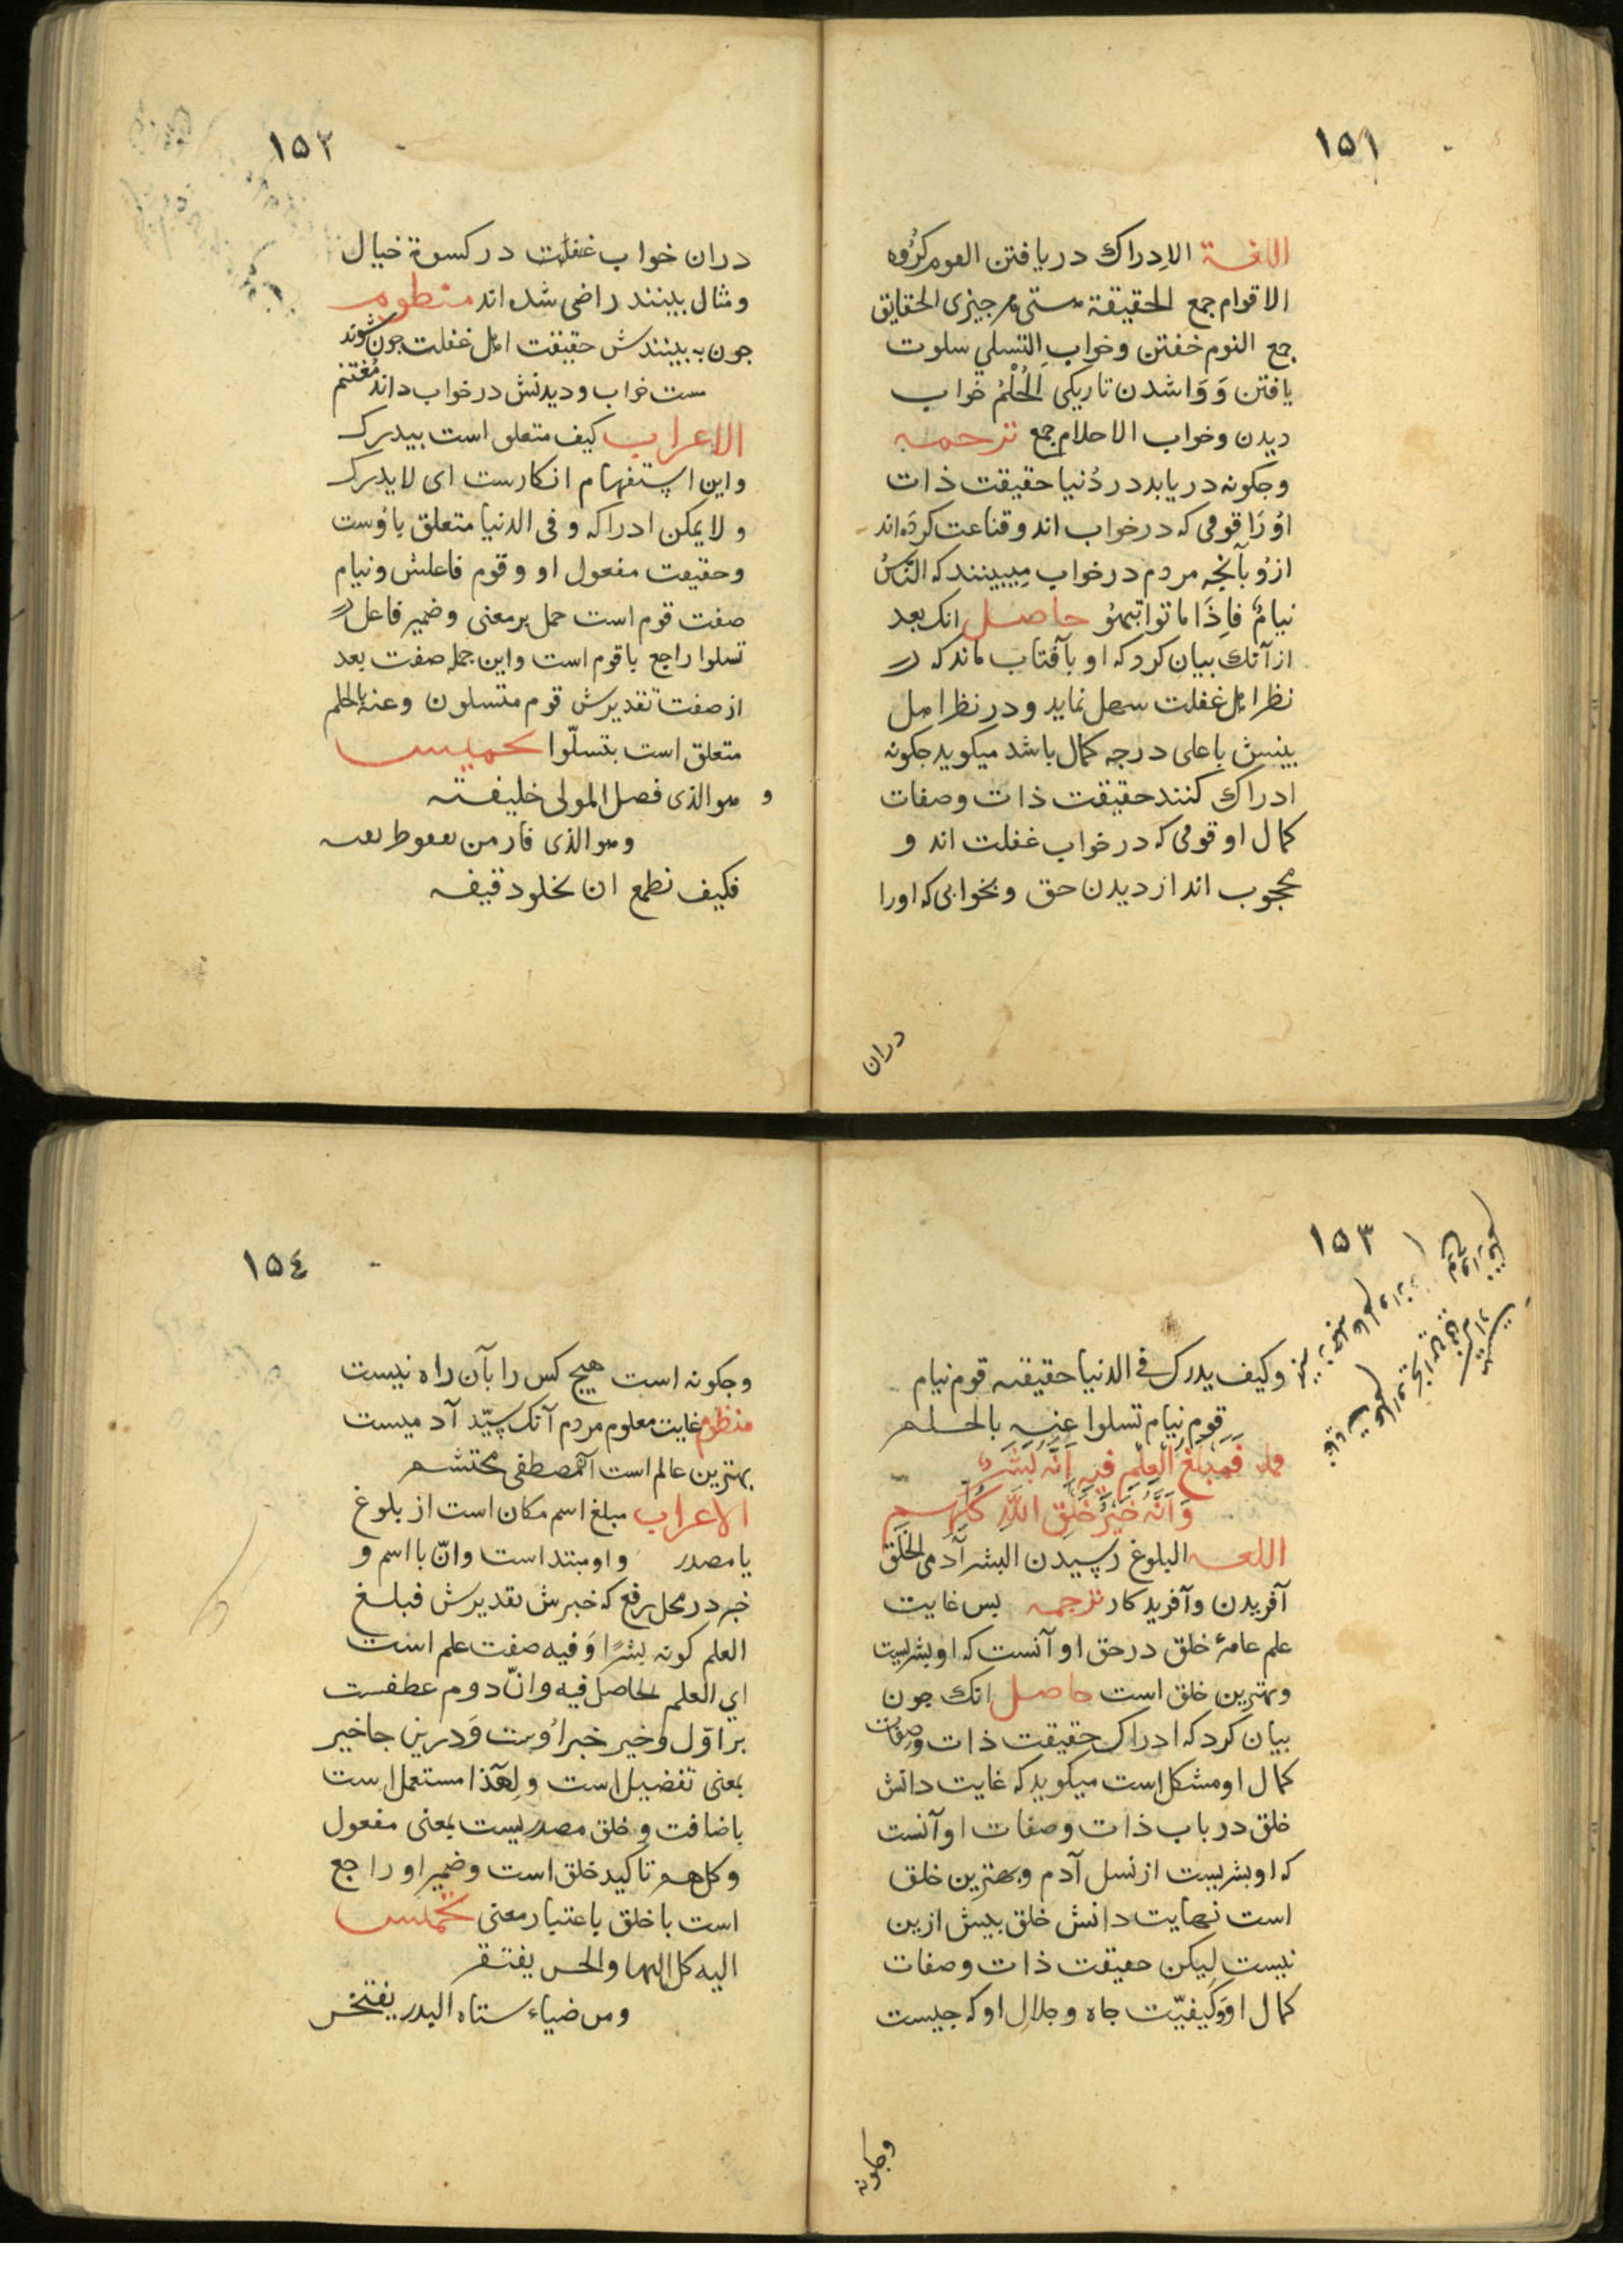 ١٥١
اللغة الادراك دریافتن القوم کروه
الاقوام جمع الحقیقة هستی هر جیزی الحقایق
جمع النوم خفتن وخواب التسلي سلوت
یافتن وَوَاشدن تاریکی الحُلْمُ خواب
دیدن وخواب الاحلام جمع ترجمه
وجکونه دریابد در دُنیا حقیقت ذات
اوُرَا قومی که درخواب اند وقناعت کردَه اند
ازوُ بآنجه مردم درخواب میبینند که النَّاسُ
نیامٌ فاِذَا ماتوا انتبهوُ حاصل انک بعد
از آنک بیان کرد که او بآفتاب ماند که در
نظر اهل غفلت سهل نماید و در نظر اهل
بینش باعلی درجه کمال باشد میکوید جکونه
ادراک کنند حقیقت ذات وصفات
کمال او قومی که درخواب غفلت اند و
محجوب اند از دیدن حق وبخوابی که اورا
دران
١٥٢
دران خواب غفلت درکسوة خیال
ومثال بینند راضی شده اند منظوم
جون به بینندش حقیقت اهل غفلت جون شوند
مست خواب ودیدنش درخواب داند مُغتنم
الاعراب کیف متعلق است بیدرک
واین استفهام انکارست ای لا یدرک
و لا یمکن ادراکه وفی الدنیا متعلق باوُست
وحقیقت مفعول او وقوم فاعلش ونیام
صفت قوم است حمل برمعنی وضمیر فاعل در
تسلوا راجع باقوم است واین جمله صفت بعد
از صفت تقدیرش قوم متسلون وعنه بالحلم
متعلق است بتسلّوا تخمیس
و هو الذی فضل المولی خلیفته
وهو الذی فاز من
فکیف نطمع ان
١٥٣
وکیف یدرک فی الدنیا حقیقته قوم نیام
قوم نیام تسلوا عنه بالحلم
فَمَبْلَغُ الْعِلْمِ فیهِ اَنَّهُ بَشَرٌ
وَاَنَّهُ خَیْرُ خَلْقِ اللَّهِ کُلِّهِم
اللغه البلوغ رسیدن البشر آدمی الخَلق
آفریدن وآفریدکار ترجمه بس غایت
علم عامهٔ خلق درحق او آنست که او بشریست
وبهترین خلق است حاصل انک جون
بیان کرد که ادراک حقیقت ذات وصفات
کمال او مشکل است میکوید که غایت دانش
خلق درباب ذات وصفات او آنست
که او بشریست از نسل آدم وبهترین خلق
است نهایت دانش خلق بیش ازین
نیست لیکن حقیقت ذات وصفات
کمال او وَکیفیّت جاه وجلالِ او که جیست
وجکونه
١٥٤
وجکونه است هیچ کس را بآن راه نیست
منظوم غایت معلوم مردم آنک سیّد آدمیست
بهترین عالم است آن مصطفی محتشم
الاعراب مبلغ اسم مکان است از بلوغ
یا مصدر واو مبتداست وانّ با اسم و
خبر در محل رفع که خبرش تقدیرش فبلغ
العلم کونه بشرًا وَفیه صفت علم است
ای العلم الحاصل فیه وانّ دوم عطفست
بر اوّل وخیر خبر اوُست وَدرین جا خیر
بمعنی تفضیل است ولهذا مستعمل است
باضافت وخلق مصدریست بمعنی مفعول
وکلهم تاکید خلق است وضمیر او راجع
است باخلق باعتبار معنی تخمیس
الیه کل البها والحسن یفتقر
ومن ضیاء سناه البدر یفتخر